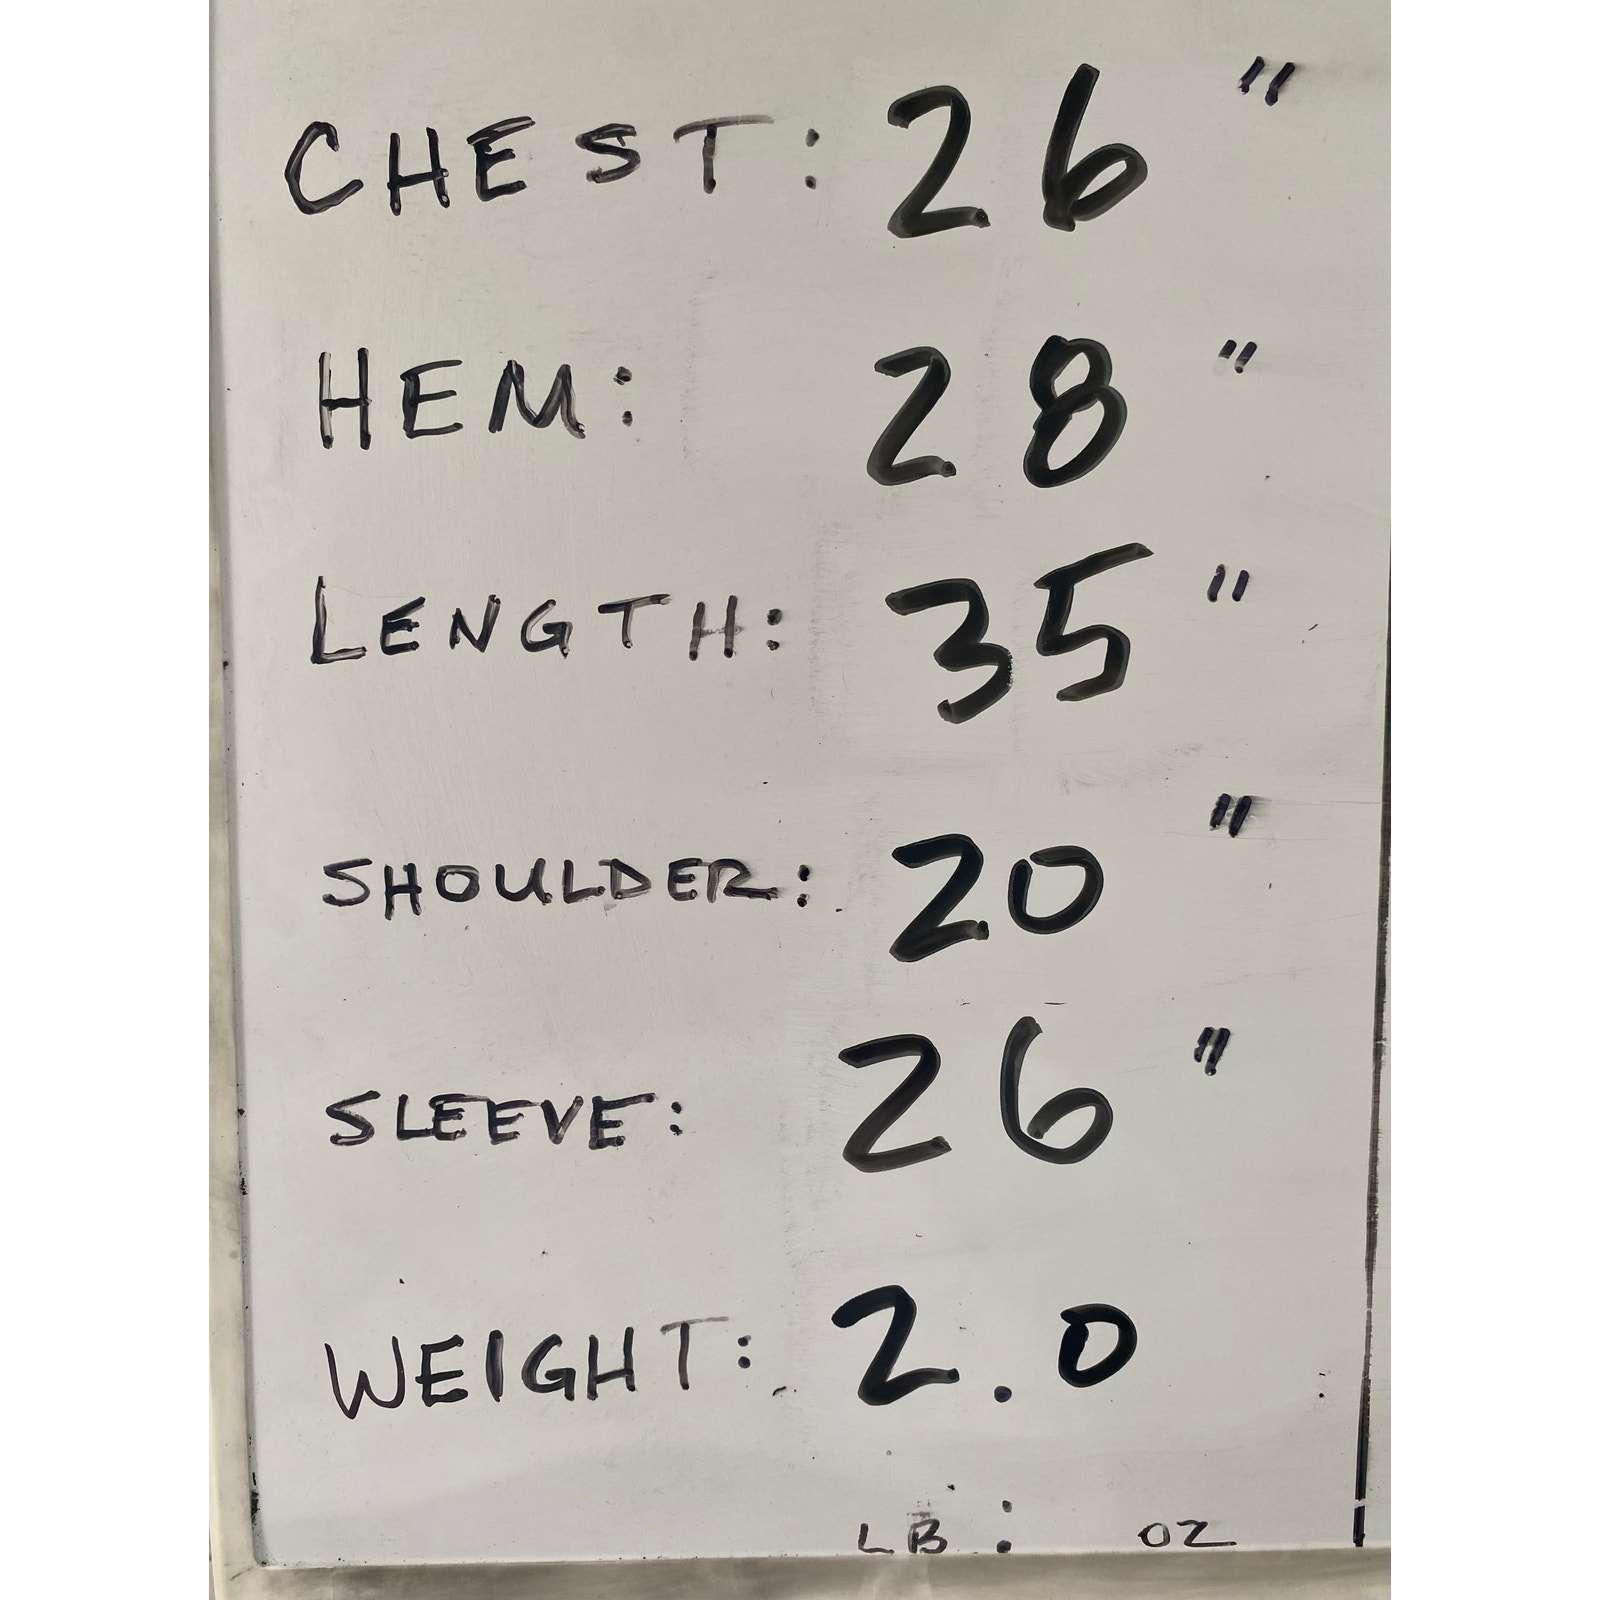 CHEST: 26 "
HEM: 28 "
LENGTH: 35 "
SHOULDER: 20 "
SLEEVE: 26 "
WEIGHT: 2.0
LB : OZ